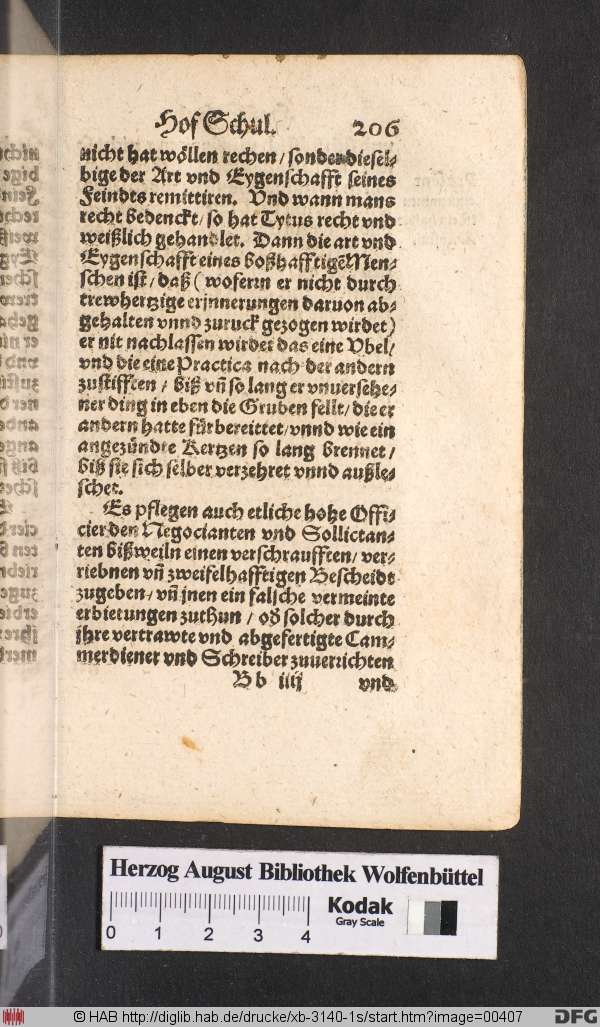 Hof Schul. 206
nicht hat wöllen rechen / sonder diesel-
bige der Art vnd Eygenschafft seines
Feindts remittiren. Vnd wann mans
recht bedenckt / so hat Tytus recht vnd
weißlich gehandlet. Dann die art vnd
Eygenschafft eines boßhafftigẽ Men-
schen ist / daß ( wofern er nicht durch
trewhertzige erjnnerungen daruon ab-
gehalten vnnd zuruck gezogen wirdet )
er nit nachlassen wirdet das eine Vbel /
vnd die eine Practica nach der andern
zustifften / biß vñ so lang er vnuersehe-
ner ding in eben die Gruben fellt / die er
andern hatte fürbereittet / vnnd wie ein
angezündte Kertzen so lang brennet /
biß sie sich selber verzehret vnnd außle-
schet.
Es pflegen auch etliche hohe Offi-
cier den Negocianten vnd Sollictan-
ten bißweiln einen verschraufften / ver-
riebnen vñ zweifelhafftigen Bescheidt
zugeben / vñ jnen ein falsche vermeinte
erbietungen zuthun / oď solcher durch
jhre vertrawte vnd abgefertigte Cam-
merdiener vnd Schreiber zuuerrichten
B b iiij vnd
Herzog August Bibliothek Wolfenbüttel
0 1 2 3 4
Kodak
Gray Scale
© HAB http://diglib.hab.de/drucke/xb-3140-1s/start.htm?image=00407
DFG